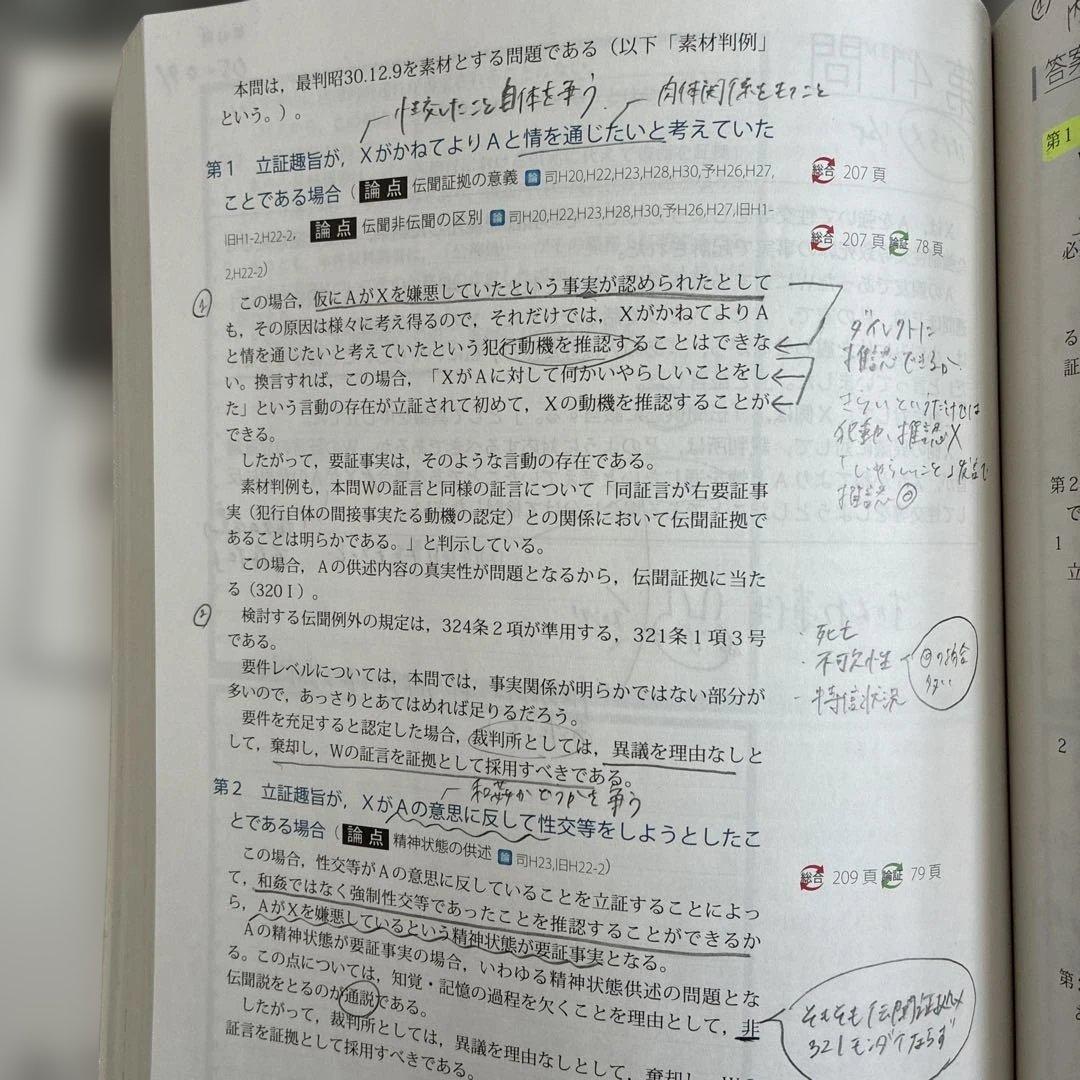 本問は，最判昭30.12.9を素材とする問題である（以下「素材判例」
という。）。
性交したこと自体を争う
肉体関係をもつこと
第1　立証趣旨が，XがかねてよりAと情を通じたいと考えていた
ことである場合（論点 伝聞証拠の意義 論 司H20,H22,H23,H28,H30,予H26,H27,
旧H1-2,H22-2,　論点 伝聞非伝聞の区別 論 司H20,H22,H23,H28,H30,予H26,H27,旧H1-
2,H22-2）
総合 207頁
総合 207頁 論証 78頁
① この場合，仮にAがXを嫌悪していたという事実が認められたとして
も，その原因は様々に考え得るので，それだけでは，XがかねてよりA
と情を通じたいと考えていたという犯行動機を推認することはできな
い。換言すれば，この場合，「XがAに対して何かいやらしいことをし
た」という言動の存在が立証されて初めて，Xの動機を推認することが
できる。
ダイレクトに
推認できるか
きらいというだけでは
推認X
「いやらしいこと」
推認
したがって，要証事実は，そのような言動の存在である。
素材判例も，本問Wの証言と同様の証言について「同証言が右要証事
実（犯行自体の間接事実たる動機の認定）との関係において伝聞証拠で
あることは明らかである。」と判示している。
この場合，Aの供述内容の真実性が問題となるから，伝聞証拠に当た
る（320Ⅰ）。
② 検討する伝聞例外の規定は，324条２項が準用する，321条１項３号
である。
・死亡
・不可欠性
・特信状況
要件レベルについては，本問では，事実関係が明らかではない部分が
多いので，あっさりとあてはめれば足りるだろう。
要件を充足すると認定した場合，裁判所としては，異議を理由なしと
して，棄却し，Wの証言を証拠として採用すべきである。
和姦かどうかを争う
第2　立証趣旨が，XがAの意思に反して性交等をしようとしたこ
とである場合（論点 精神状態の供述 論 司H23,旧H22-2）
総合 209頁 論証 79頁
この場合，性交等がAの意思に反していることを立証することによっ
て，和姦ではなく強制性交等であったことを推認することができるか
ら，AがXを嫌悪しているという精神状態が要証事実となる。
Aの精神状態が要証事実の場合，いわゆる精神状態供述の問題とな
る。この点については，知覚・記憶の過程を欠くことを理由として，非
伝聞説をとるのが通説である。
そもそも伝聞証拠X
321モンダイならず
したがって，裁判所としては，異議を理由なしとして，棄却し，Wの
証言を証拠として採用すべきである。
答案
第1
必
る
証
第2
で
1
立
2
第